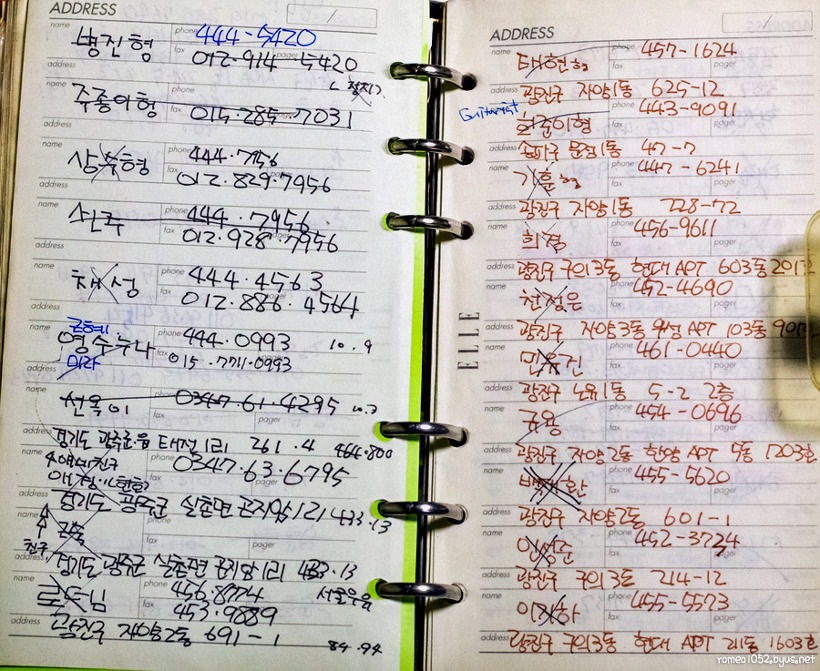 ADDRESS
name 병진형 phone 444-5420
fax 012.914.5420 pager
address
name 주종이형 phone
fax 015-285-7031 pager
address
name 상수형 phone 444.7956
fax 012.829.7956
address
name 선주 phone 444.7956
fax 012.928.7956
address
name 채성 phone 444.4563
fax 012.886.4564
address
name 영수누나 phone 444.0993 10.9
미라 fax 015.7711.0993
address
name 선옥이 phone 0347.61.4295 10.7
fax pager
address 경기도 광주군 읍 태전 1리 261.4 464.800
phone 0347.63.6795
fax pager
address 경기도 광주군 실촌면 곤지암 1리 433.13
name phone
친구 fax pager
address 경기도 광주군 실촌면 곤지암 1리 433.13
name phone 456.8774 서울우유
fax 453.9889
address 광진구 자양2동 691-1 84.94
ADDRESS
name 태현형 phone 457-1624
fax pager
address 광진구 자양1동 625-12
Guitarist
name 희준이형 phone 443-9091
fax pager
address 송파구 문정1동 47-7
name 기훈형 phone 447-6241
fax pager
address 광진구 자양1동 228-72
name 희정 phone 456-9611
fax pager
address 광진구 구의3동 현대 APT 603동
name 천정은 phone 452-4690
fax pager
address 광진구 자양3동 우성 APT 103동
name 민유진 phone 461-0440
fax pager
address 광진구 노유1동 5-2 2층
name 규용 phone 454-0696
fax pager
address 광진구 자양2동 한양 APT 5동 1203호
name phone 455-5620
fax pager
address 광진구 자양2동 601-1
name 이성준 phone 452-3724
fax pager
address 광진구 구의3동 214-12
name 이지하 phone 455-5573
fax pager
address 광진구 구의3동 현대 APT 211동 1603호
ELLE
romeo1052.byus.net